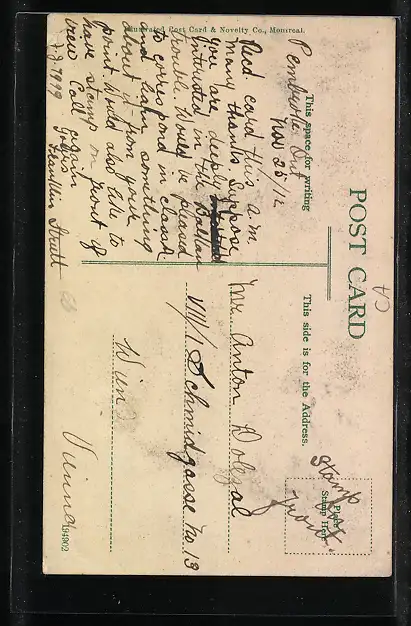 Illustrated Post Card & Novelty Co., Montreal.
POST CARD
This space for writing
This side is for the Address.
Place
Stamp Here
Stamp
on
front
CA
Pembroke Ont
Nov 25/12
Recd card this a.m.
many thanks. Suppose
you are deeply
interested in the Balkan
trouble. Would be pleased
to correspond in classes
and learn something
about it from your
point. Would also like to
have stamp on front of
view Call again
Yours
Franklin Stratt
L.J. 7999
Mr. Anton Dolezal
VII/1 Schmidgasse No. 13
Wien
Vienna
194902